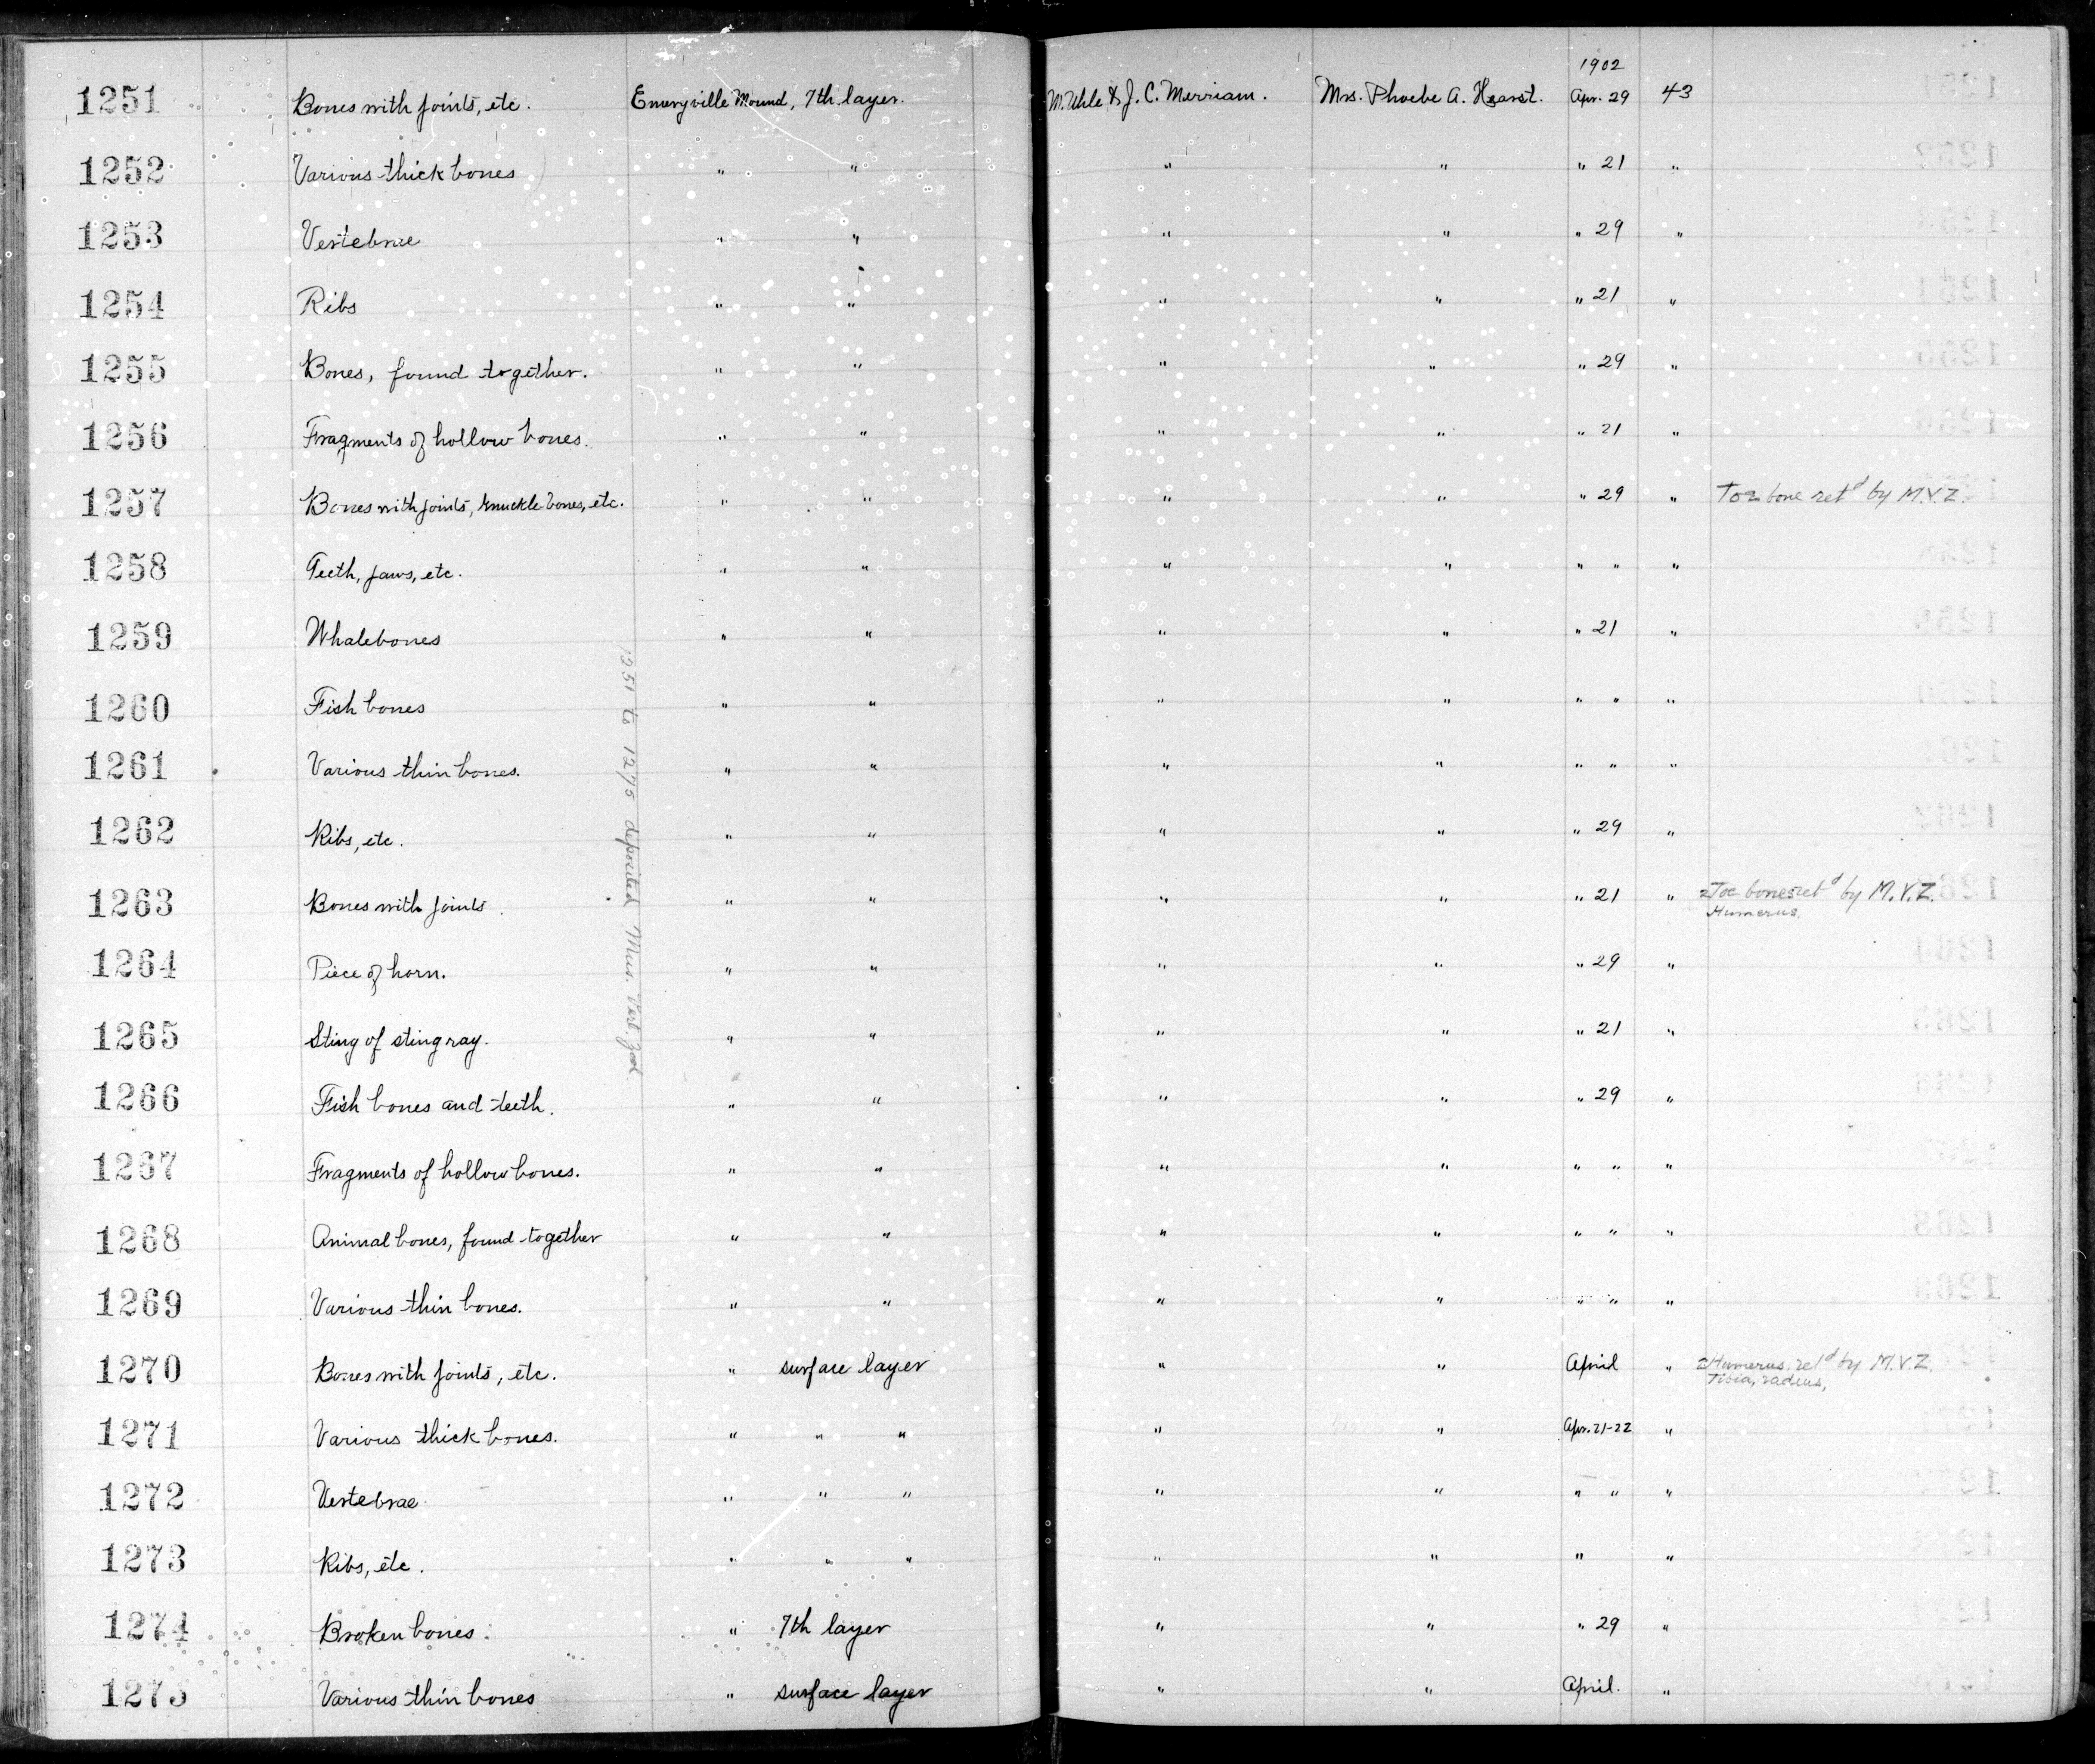 1902
1251 Bones with joints, etc. Emeryville Mound, 7th layer. M. Uhle & J. C. Merriam. Mrs. Phoebe A. Hearst. Apr. 29 43
1252 Various thick bones " " " " " 21 "
1253 Vertebrae " " " " " 29 "
1254 Ribs " " " " " 21 "
1255 Bones, found together. " " " " " 29 "
1256 Fragments of hollow bones. " " " " " 21 "
1257 Bones with joints, knuckle-bones, etc. " " " " " 29 " Toe bone ret'd by M.V.Z.
1258 Teeth, jaws, etc. " " " " " " "
1259 Whalebones " " " " " 21 "
1260 Fish bones " " " " " " "
1261 Various thin bones. " " " " " " "
1262 Ribs, etc. " " " " " 29 "
1263 Bones with joints. " " " " " 21 " 2 Toe bones ret'd by M.V.Z.
Humerus.
1264 Piece of horn. " " " " " 29 "
1265 Sting of sting ray. " " " " " 21 "
1266 Fish bones and teeth. " " " " " 29 "
1267 Fragments of hollow bones. " " " " " " "
1268 Animal bones, found together " " " " " " "
1269 Various thin bones. " " " " " " "
1270 Bones with joints, etc. " surface layer " " April " 2 Humerus. ret'd by M.V.Z.
Tibia, radius,
1271 Various thick bones. " " " " " Apr. 21-22 "
1272 Vertebrae " " " " " " " "
1273 Ribs, etc. " " " " " " "
1274 Broken bones. " 7th layer " " " 29 "
1275 Various thin bones " surface layer " " April. "
1251 to 1275 deposited Mus. Vert. Zool.